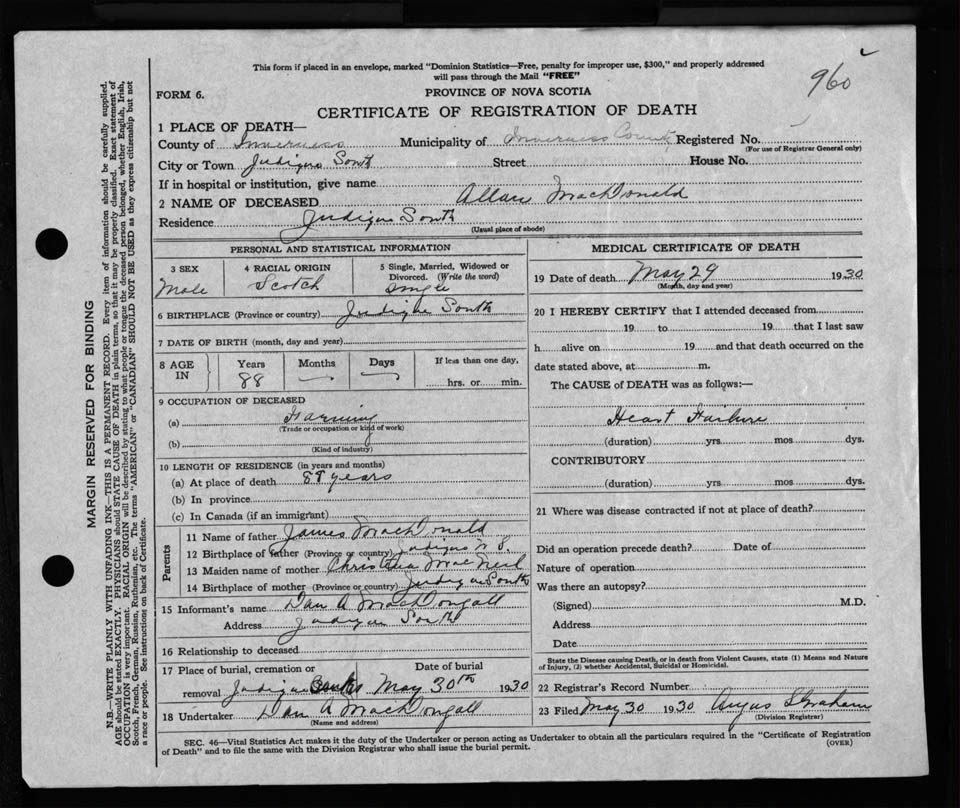 This form if placed in an envelope, marked "Dominion Statistics—Free, penalty for improper use, $300," and properly addressed
will pass through the Mail "FREE"
960
FORM 6.
PROVINCE OF NOVA SCOTIA
CERTIFICATE OF REGISTRATION OF DEATH
1 PLACE OF DEATH—
County of Inverness Municipality of Inverness County Registered No.
(For use of Registrar General only)
City or Town Judique South Street House No.
If in hospital or institution, give name
2 NAME OF DECEASED Allan MacDonald
Residence Judique South
(Usual place of abode)
PERSONAL AND STATISTICAL INFORMATION
3 SEX
Male
4 RACIAL ORIGIN
Scotch
5 Single, Married, Widowed or
Divorced. (Write the word)
Single
6 BIRTHPLACE (Province or country) Judique South
7 DATE OF BIRTH (month, day and year)
8 AGE IN
Years
88
Months
—
Days
—
If less than one day,
hrs. or min.
9 OCCUPATION OF DECEASED
(a) Farming
(Trade or occupation or kind of work)
(b)
(Kind of industry)
10 LENGTH OF RESIDENCE (in years and months)
(a) At place of death 88 years
(b) In province
(c) In Canada (if an immigrant)
Parents
11 Name of father James MacDonald
12 Birthplace of father (Province or country) Judique N. S.
13 Maiden name of mother Christina MacNeil
14 Birthplace of mother (Province or country) Judique South
15 Informant's name Dan A MacDougall
Address Judique South
16 Relationship to deceased
17 Place of burial, cremation or Date of burial
removal Judique May 30th 1930
18 Undertaker Dan A MacDougall
(Name and address)
MEDICAL CERTIFICATE OF DEATH
19 Date of death May 29 1930
(Month, day and year)
20 I HEREBY CERTIFY that I attended deceased from
19 to 19 that I last saw
h alive on 19 and that death occurred on the
date stated above, at m.
The CAUSE of DEATH was as follows:—
Heart Failure
(duration) yrs. mos dys.
CONTRIBUTORY
(duration) yrs. mos. dys.
21 Where was disease contracted if not at place of death?
Did an operation precede death? Date of
Nature of operation
Was there an autopsy?
(Signed) M.D.
Address
Date
State the Disease causing Death, or in death from Violent Causes, state (1) Means and Nature
of Injury, (2) whether Accidental, Suicidal or Homicidal.
22 Registrar's Record Number
23 Filed May 30 1930 Angus Graham
(Division Registrar)
SEC. 46—Vital Statistics Act makes it the duty of the Undertaker or person acting as Undertaker to obtain all the particulars required in the "Certificate of Registration
of Death" and to file the same with the Division Registrar who shall issue the burial permit.
(OVER)
MARGIN RESERVED FOR BINDING
N.B.—WRITE PLAINLY WITH UNFADING INK—THIS IS A PERMANENT RECORD. Every item of information should be carefully supplied.
AGE should be stated EXACTLY. PHYSICIANS should STATE CAUSE OF DEATH in plain terms, so that it may be properly classified. Exact statement of
OCCUPATION is very important. RACIAL ORIGIN will be described by stating to what people or tongue the deceased person belonged, whether English, Irish,
Scotch, French, German, Russian, Ruthenian, etc. The terms "AMERICAN" or "CANADIAN" SHOULD NOT BE USED as they express citizenship but not
a race or people. See instructions on back of Certificate.